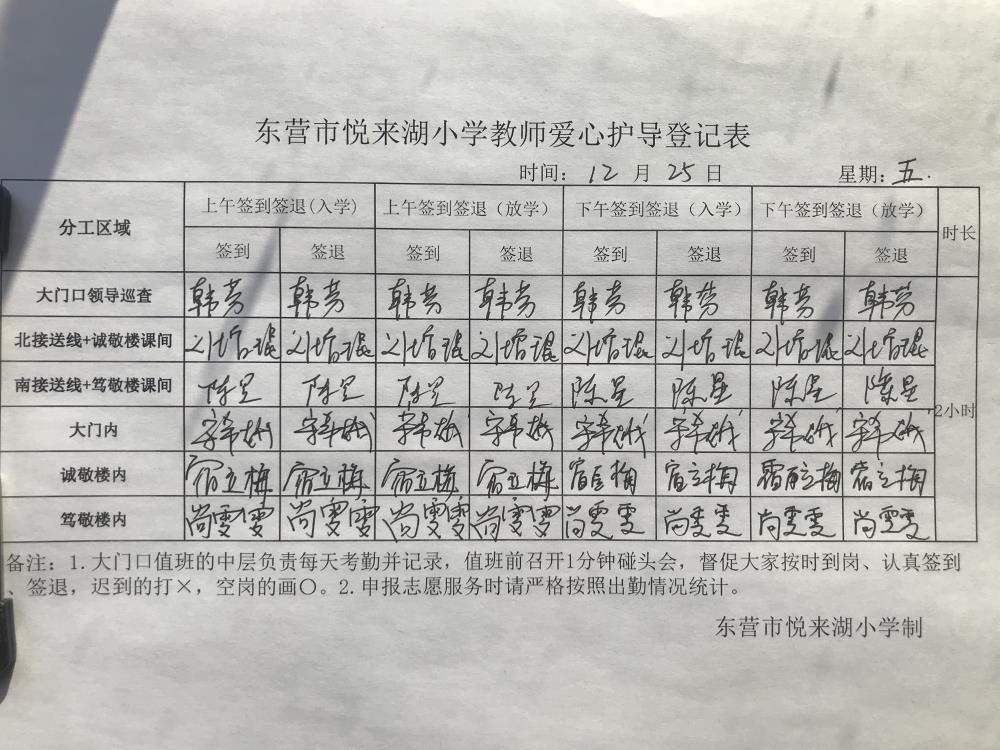 东营市悦来湖小学教师爱心护导登记表
时间：12月25日 星期：五.
分工区域 上午签到签退(入学) 上午签到签退（放学） 下午签到签退（入学） 下午签到签退（放学） 时长
签到 签退 签到 签退 签到 签退 签到 签退
大门口领导巡查 韩芳 韩芳 韩芳 韩芳 韩芳 韩芳 韩芳 韩芳
北接送线+诚敬楼课间
南接送线+笃敬楼课间 陈星 陈星 陈星 陈星 陈星 陈星 陈星 陈星
2小时
大门内
诚敬楼内 宿立梅 宿立梅 宿立梅 宿立梅 宿立梅 宿立梅 宿立梅 宿立梅
笃敬楼内 尚雯雯 尚雯雯 尚雯雯 尚雯雯 尚雯雯 尚雯雯 尚雯雯 尚雯雯
备注：1.大门口值班的中层负责每天考勤并记录，值班前召开1分钟碰头会，督促大家按时到岗、认真签到
、签退，迟到的打×，空岗的画〇。2.申报志愿服务时请严格按照出勤情况统计。
东营市悦来湖小学制